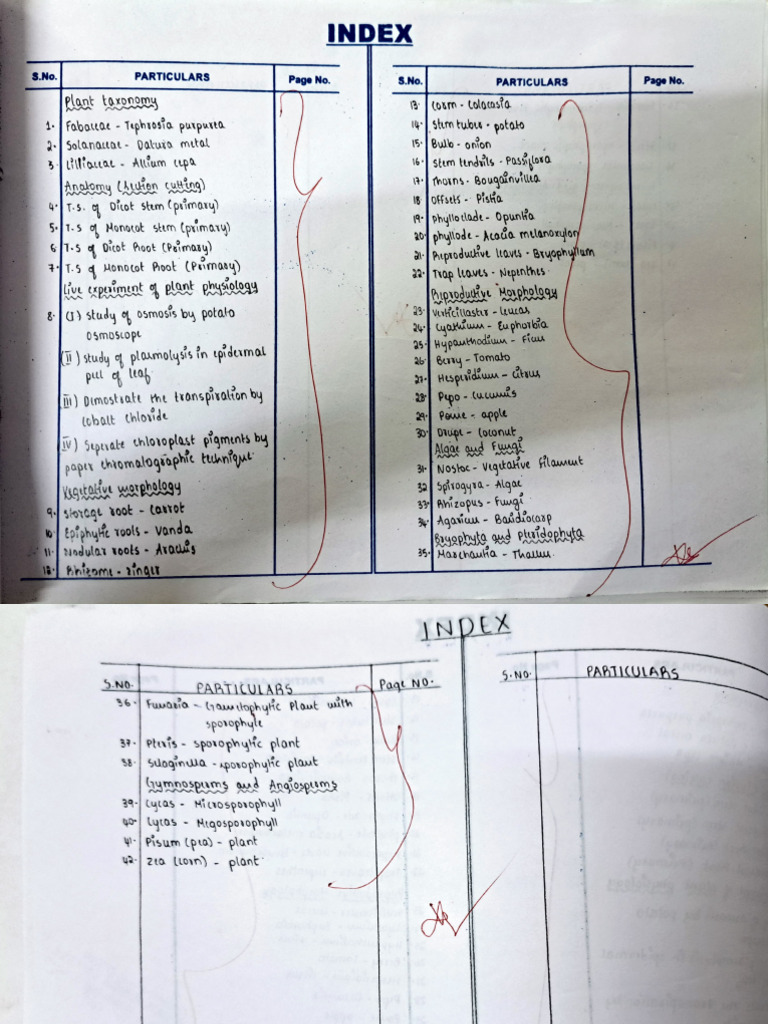 INDEX
S.No. PARTICULARS Page No.
Plant taxonomy
1. Fabaceae - Tephrosia purpurea
2. Solanaceae - Datura metal
3. Lilliaceae - Allium cepa
Anatomy (Section cutting)
4. T.S. of Dicot stem (primary)
5. T.S of Monocot stem (primary)
6. T.S of Dicot Root (Primary)
7. T.S of Monocot Root (Primary)
Live experiment of plant physiology
8. (I) study of osmosis by potato
osmoscope
(II) study of plasmolysis in epidermal
peel of leaf
III) Demostrate the transpiration by
cobalt chloride
IV) Seperate chloroplast pigments by
paper chromatographic technique.
Vegetative morphology
9. Storage root - Carrot
10. Epiphytic roots - Vanda
11. Nodular roots - Arachis
12. Rhizome - Zinger
S.No. PARTICULARS Page No.
13. Corm - Colacasia
14. Stem tuber - potato
15. Bulb - onion
16. Stem tendrils - Passiflora
17. Thorns - Bougainvillea
18. Offsets - Pistia
19. phylloclade - Opuntia
20. phyllode - Acacia melanoxylon
21. Reproductive leaves - Bryophyllam
22. Trap leaves - Nepenthes
Reproductive Morphology
23. Verticillaster - Leucas
24. Cyathium - Euphorbia
25. Hypanthodium - Ficus
26. Berry - Tomato
27. Hesperidium - Citrus
28. Pepo - Cucumis
29. Pome - apple
30. Drupe - Coconut
Algae and Fungi
31. Nostoc - Vegetative Filament
32. Spirogyra - Algae
33. Rhizopus - Fungi
34. Agaricus - Basidiocarp
Bryophyta and Pteridophyta
35. Marchantia - Thallus.
INDEX
S.NO. PARTICULARS Page NO.
36. Funaria - Gametophytic Plant with
sporophyte
37. Pteris - sporophytic plant
38. Selaginella - sporophytic plant
Gymnosperms and Angiosperms
39. Cycas - Microsporophyll
40. Cycas - Megosporophyll
41. Pisum (pea) - plant
42. Zea (corn) - plant
S.NO. PARTICULARS